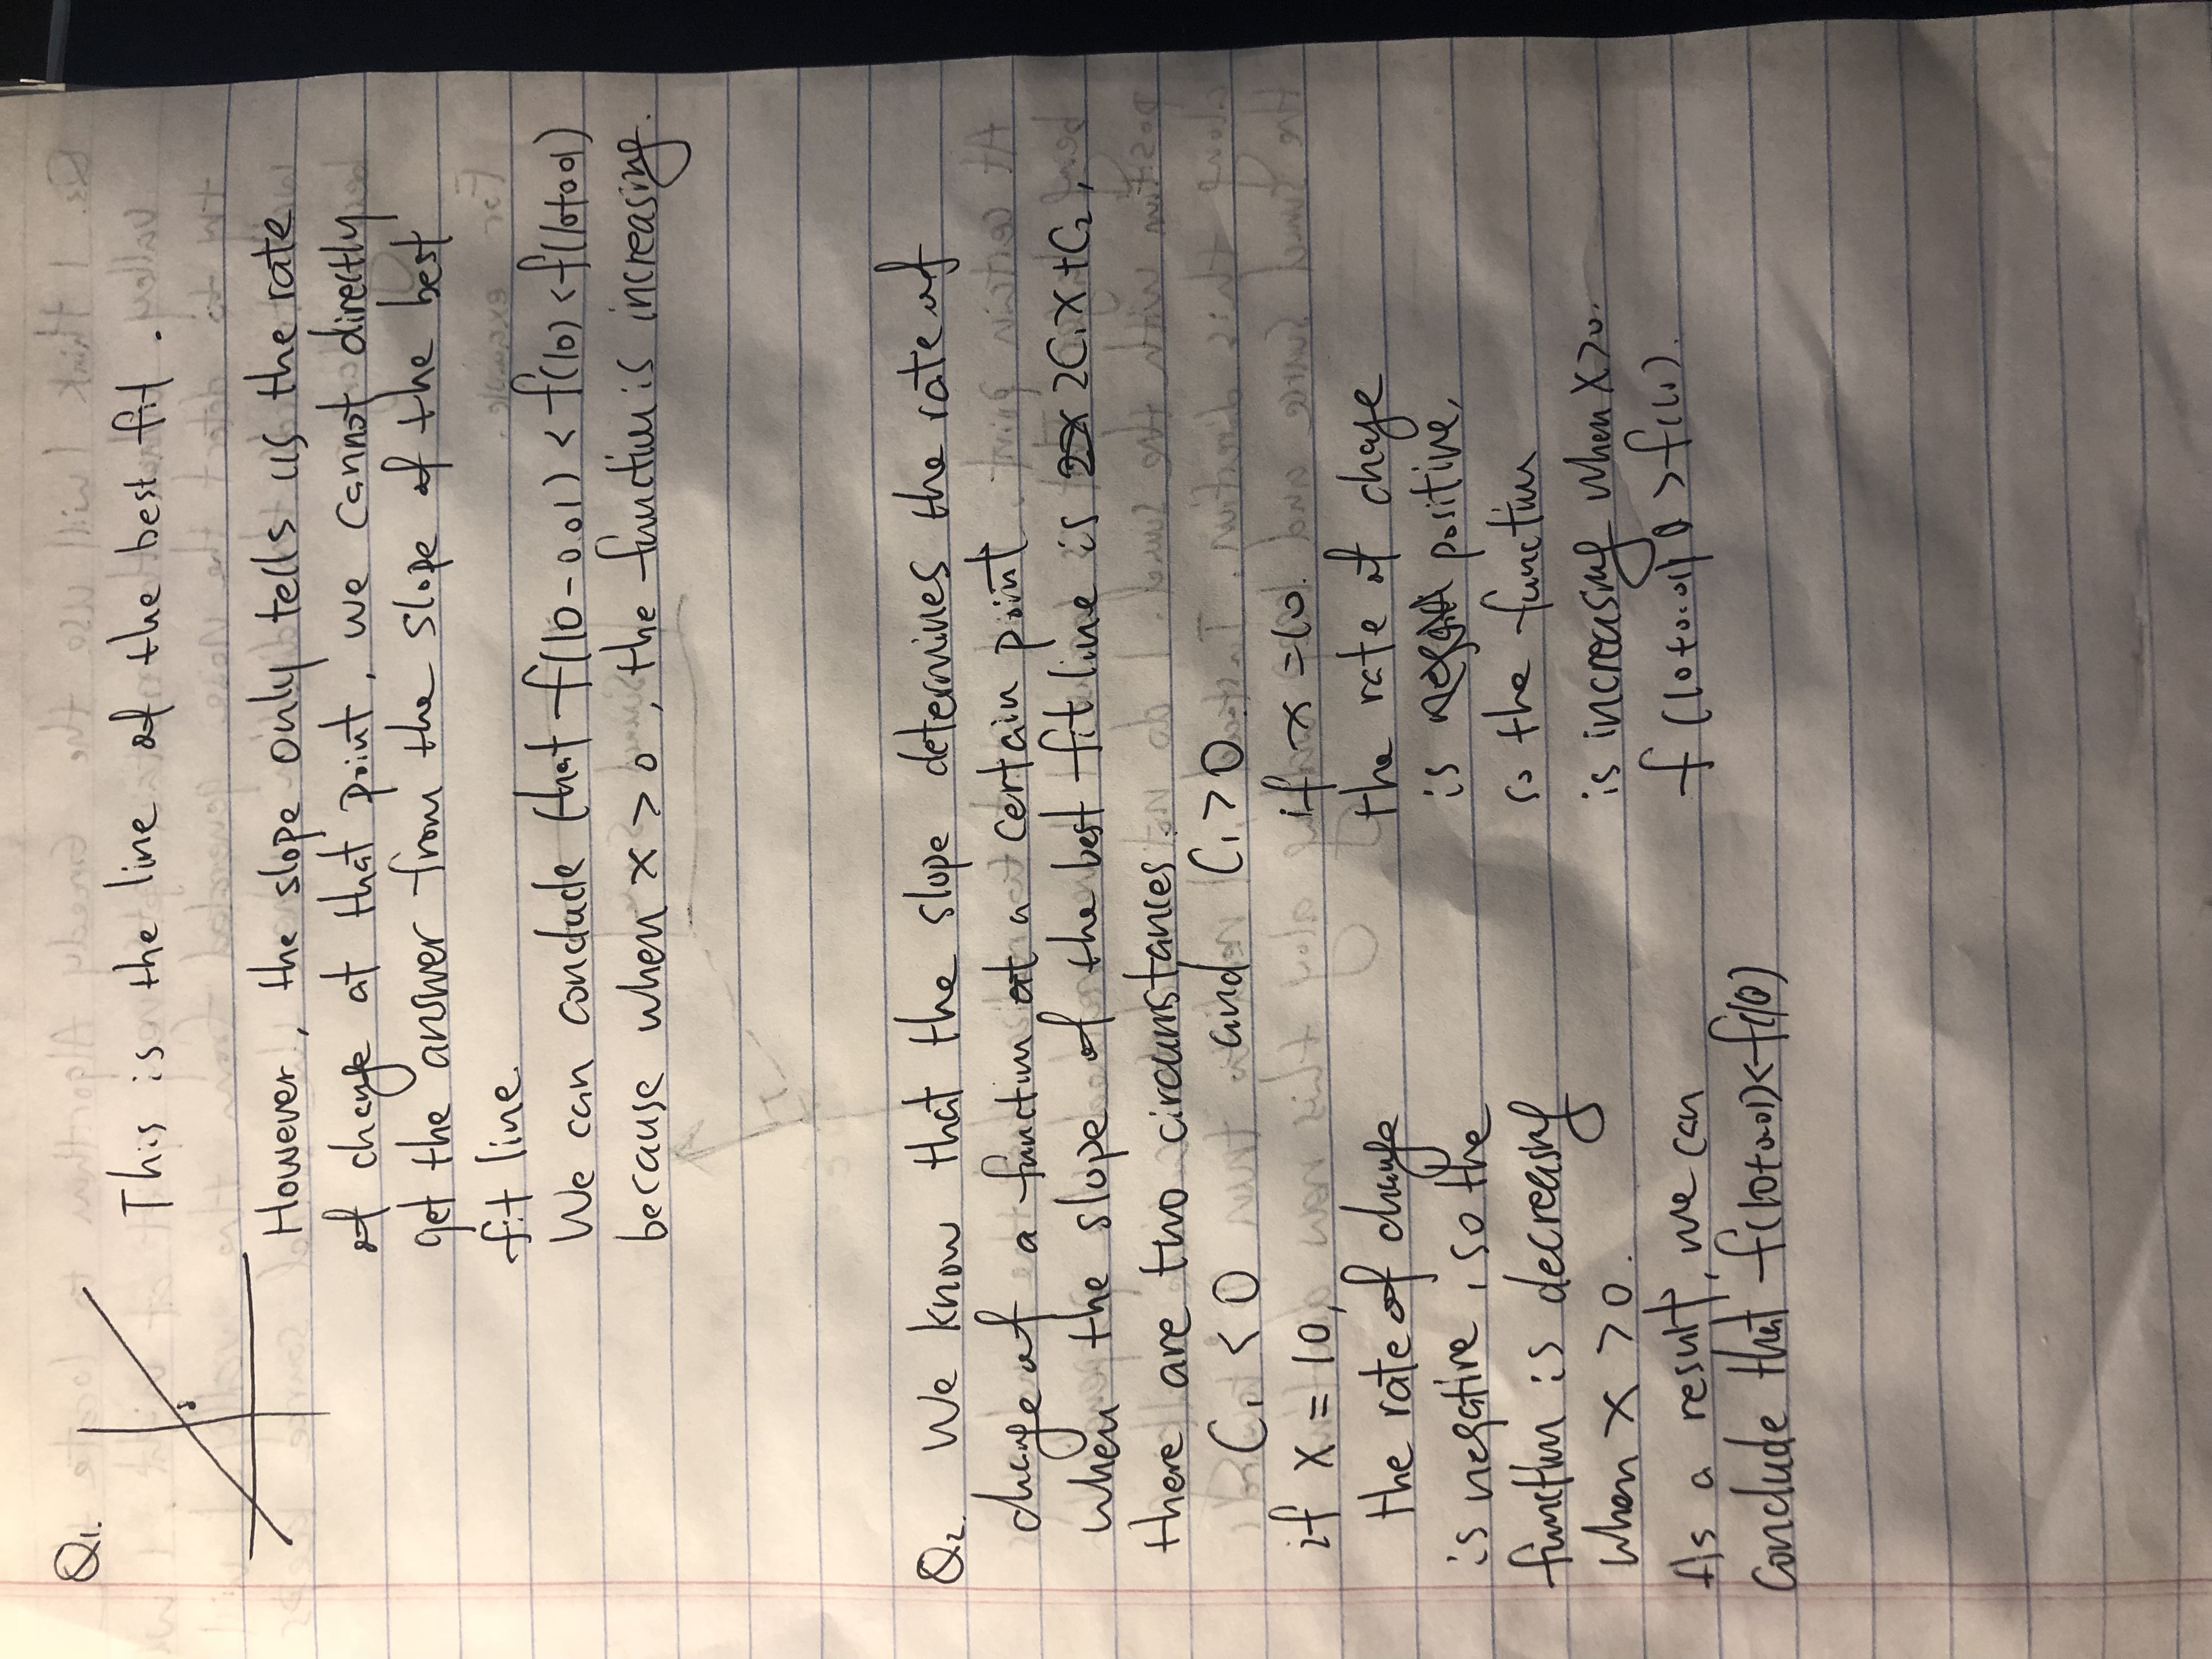 Q1.
This is the line of the best fit.
However, the slope only tells us the rate
of change at that point, we cannot directly
get the answer from the slope of the best
fit line.
We can conclude that f(10-0.01) < f(10) < f(10+0.01)
because when x > 0, the function is increasing.
Q2. We know that the slope determines the rate of
change of a function at a certain point
when the slope of the best fit line is 2C₁X+C₂,
there are two circumstances.
C₁ < 0 and C₁ > 0.
if X = 10,
the rate of change
is negative, so the
function is decreasing
when x > 0.
As a result, we can
conclude that f(10+0.01)<f(10)
if x = 10.
the rate of chage
is positive,
so the function
is increasing when X>0.
f(10+0.01) > f(10).